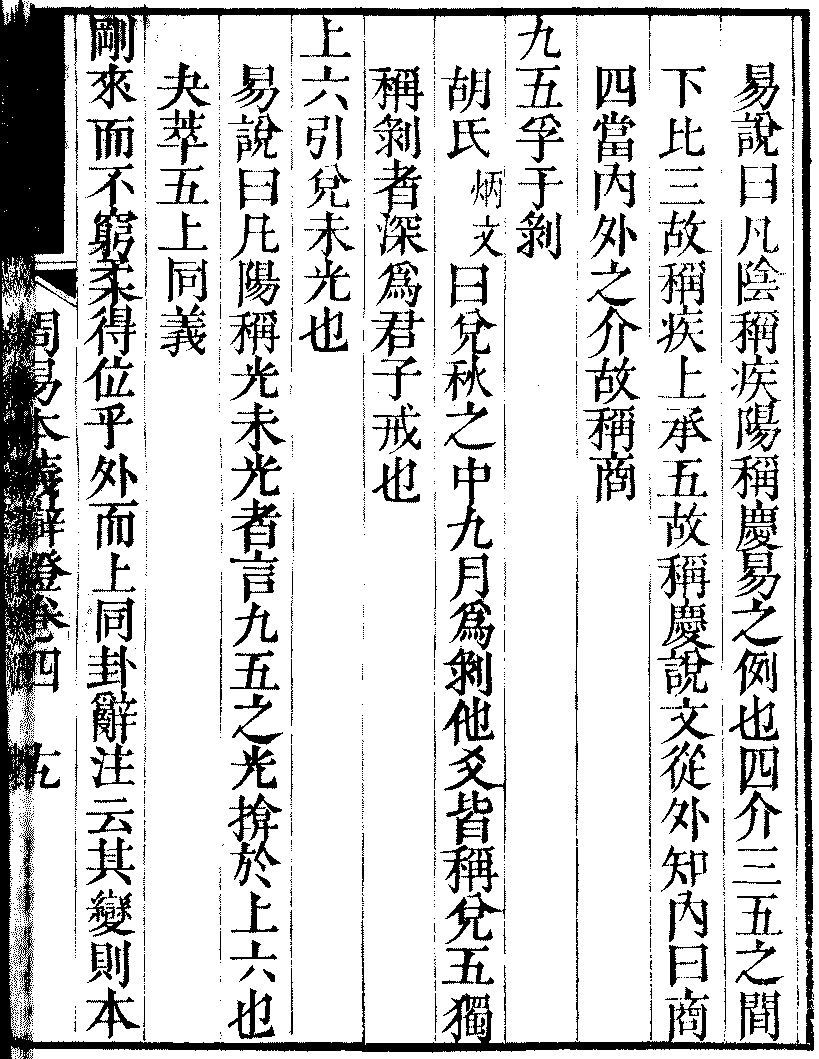 易說曰凡陰稱疾陽稱慶易之例也四介三五之間
下比三故稱疾上承五故稱慶說文從外知內曰商
四當內外之介故稱商
九五孚于剝
胡氏炳文曰兌秋之中九月爲剝他爻皆稱兌五獨
稱剝者深爲君子戒也
上六引兌未光也
易說曰凡陽稱光未光者言九五之光揜於上六也
夬萃五上同義
剛來而不窮柔得位乎外而上同卦辭注云其變則本
周易本義辯證卷四